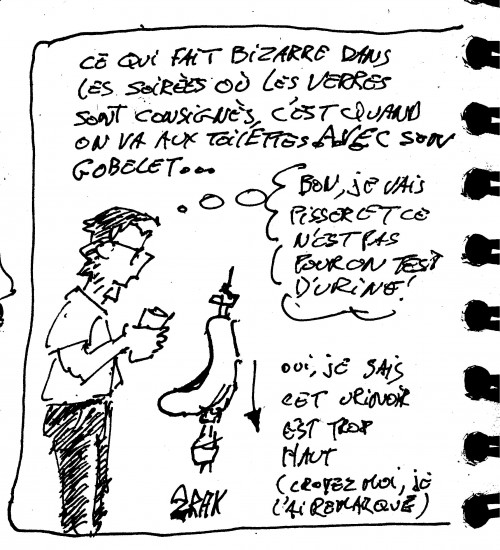 CE QUI FAIT BIZARRE DANS
LES SOIRÉES OÙ LES VERRES
SONT CONSIGNÉS, C'EST QUAND
ON VA AUX TOILETTES AVEC SON
GOBELET...
BON, JE VAIS
PISSER ET CE
N'EST PAS
POUR UN TEST
D'URINE!
OUI, JE SAIS
CET URINOIR
EST TROP
HAUT
(CROYEZ MOI, JE
L'AI REMARQUÉ)